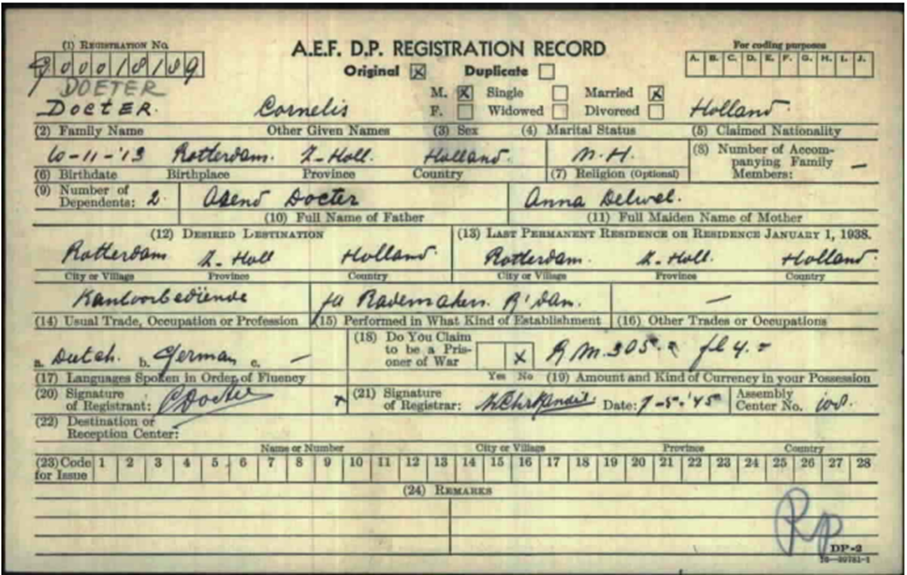 (1) REGISTRATION No.
A.E.F. D.P. REGISTRATION RECORD
For coding purposes
Original ☒ Duplicate ☐
A. B. C. D. E. F. G. H. I. J.
00018189
DOETER
M. ☒ Single ☐ Married ☒
DOCTER. Cornelis F. ☐ Widowed ☐ Divorced ☐ Holland.
(2) Family Name Other Given Names (3) Sex (4) Marital Status (5) Claimed Nationality
10-11-'13 Rotterdam. Z-Holl. Holland. N.H. (8) Number of Accompanying Family Members: —
(6) Birthdate Birthplace Province Country (7) Religion (Optional)
(9) Number of Dependents: 2. Docter Anna Delwel.
(10) Full Name of Father (11) Full Maiden Name of Mother
(12) DESIRED DESTINATION (13) LAST PERMANENT RESIDENCE OR RESIDENCE JANUARY 1, 1938.
Rotterdam Z-Holl Holland. Rotterdam. Z-Holl. Holland
City or Village Province Country City or Village Province Country
Kantoorbediende fa Rademakers. R'dam. —
(14) Usual Trade, Occupation or Profession (15) Performed in What Kind of Establishment (16) Other Trades or Occupations
a. Dutch. b. German c. — (18) Do You Claim to be a Prisoner of War ☐ Yes ☒ No R.M. 305.- fl 4.-
(17) Languages Spoken in Order of Fluency (19) Amount and Kind of Currency in your Possession
(20) Signature of Registrant: CDocter x (21) Signature of Registrar: Date: 7-5-'45 Assembly Center No.
(22) Destination or Reception Center:
Name or Number City or Village Province Country
(23) Code for Issue 1 2 3 4 5 6 7 8 9 10 11 12 13 14 15 16 17 18 19 20 21 22 23 24 25 26 27 28
(24) REMARKS
Rp
DP-2